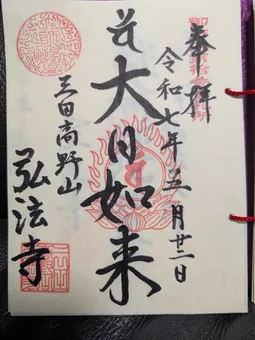 奉拝
令和七年五月廿二日
大日如来
三田高野山
弘法寺